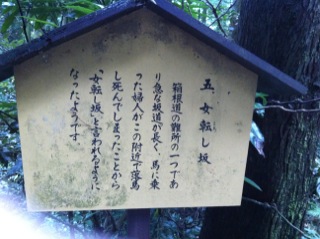 五、女転し坂
箱根道の難所の一つであ
り急な坂道が長く、馬に乗
った婦人がこの附近で落馬
し死んでしまったことから
「女転し坂」と言われるように
なったようです。